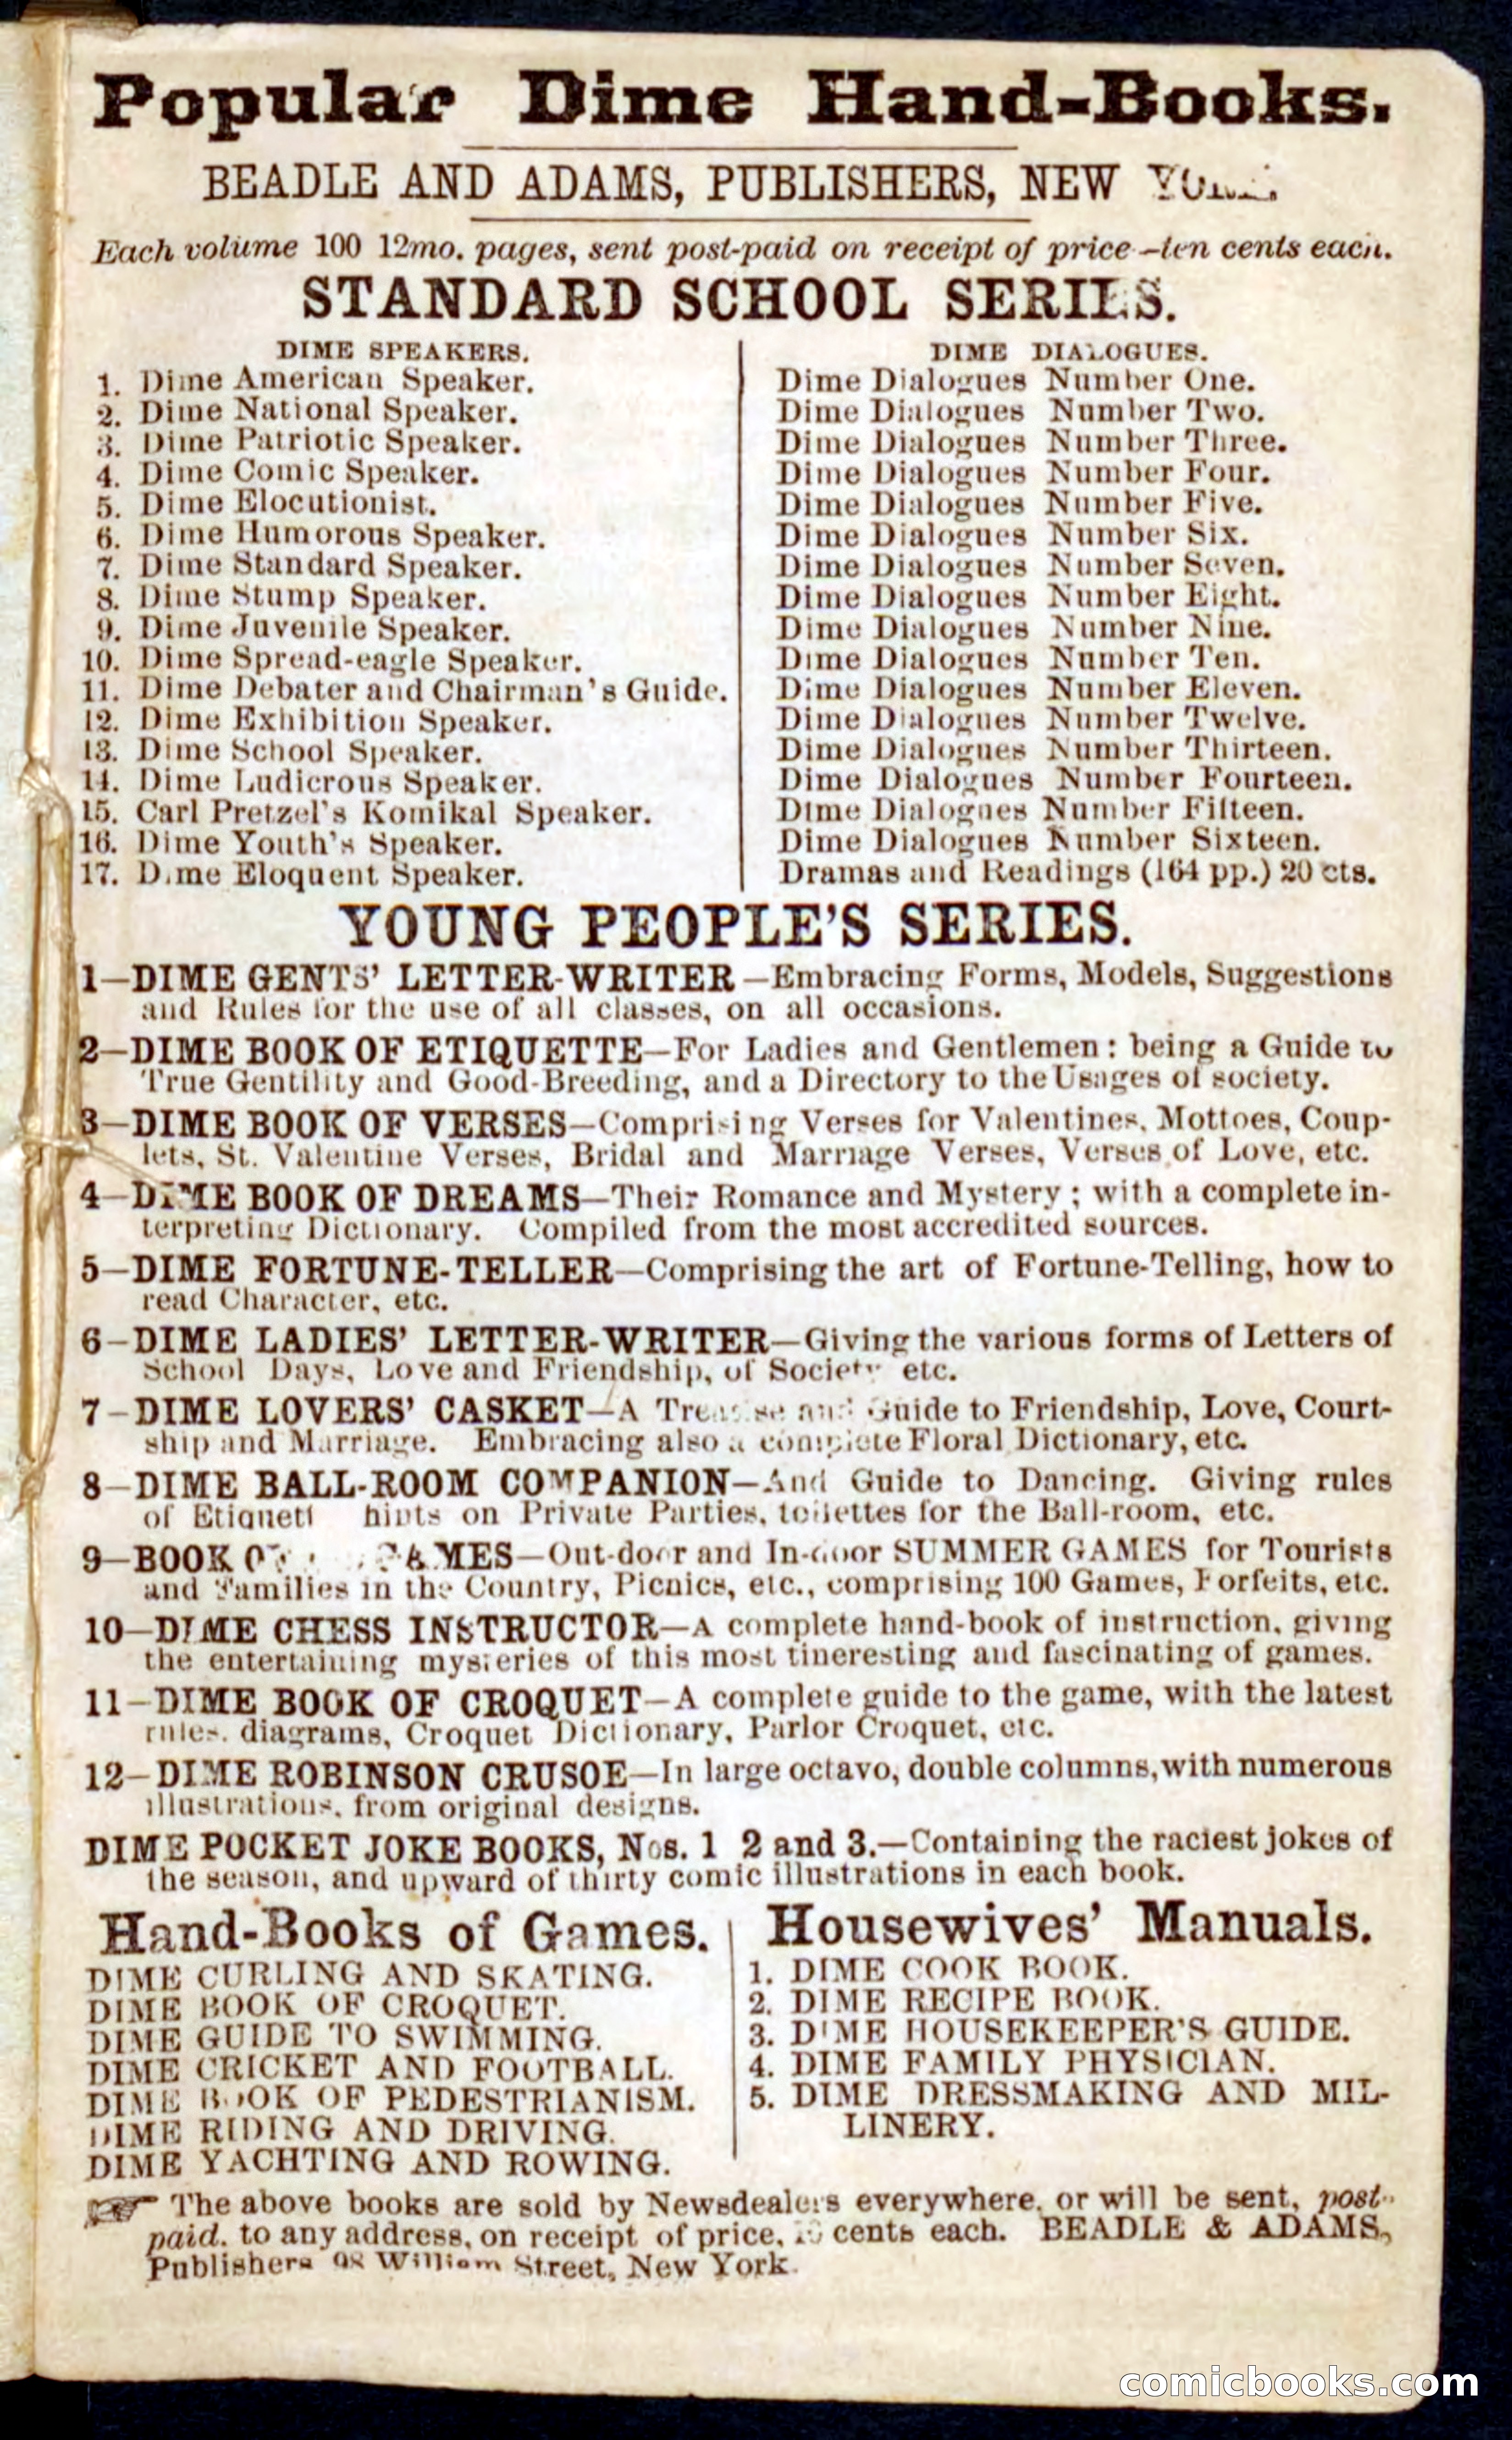 Popular Dime Hand-Books.
BEADLE AND ADAMS, PUBLISHERS, NEW
Each volume 100 12mo. pages, sent post-paid on receipt of price—ten cents each.
STANDARD SCHOOL SERIES.
DIME SPEAKERS.
1. Dime American Speaker.
2. Dime National Speaker.
3. Dime Patriotic Speaker.
4. Dime Comic Speaker.
5. Dime Elocutionist.
6. Dime Humorous Speaker.
7. Dime Standard Speaker.
8. Dime Stump Speaker.
9. Dime Juvenile Speaker.
10. Dime Spread-eagle Speaker.
11. Dime Debater and Chairman's Guide.
12. Dime Exhibition Speaker.
13. Dime School Speaker.
14. Dime Ludicrous Speaker.
15. Carl Pretzel's Komikal Speaker.
16. Dime Youth's Speaker.
17. Dime Eloquent Speaker.
DIME DIALOGUES.
Dime Dialogues Number One.
Dime Dialogues Number Two.
Dime Dialogues Number Three.
Dime Dialogues Number Four.
Dime Dialogues Number Five.
Dime Dialogues Number Six.
Dime Dialogues Number Seven.
Dime Dialogues Number Eight.
Dime Dialogues Number Nine.
Dime Dialogues Number Ten.
Dime Dialogues Number Eleven.
Dime Dialogues Number Twelve.
Dime Dialogues Number Thirteen.
Dime Dialogues Number Fourteen.
Dime Dialogues Number Fifteen.
Dime Dialogues Number Sixteen.
Dramas and Readings (164 pp.) 20 cts.
YOUNG PEOPLE'S SERIES.
1—DIME GENTS' LETTER-WRITER—Embracing Forms, Models, Suggestions
and Rules for the use of all classes, on all occasions.
2—DIME BOOK OF ETIQUETTE—For Ladies and Gentlemen: being a Guide to
True Gentility and Good-Breeding, and a Directory to the Usages of society.
3—DIME BOOK OF VERSES—Comprising Verses for Valentines, Mottoes, Coup-
lets, St. Valentine Verses, Bridal and Marriage Verses, Verses of Love, etc.
4—DIME BOOK OF DREAMS—Their Romance and Mystery; with a complete in-
terpreting Dictionary. Compiled from the most accredited sources.
5—DIME FORTUNE-TELLER—Comprising the art of Fortune-Telling, how to
read Character, etc.
6—DIME LADIES' LETTER-WRITER—Giving the various forms of Letters of
School Days, Love and Friendship, of Society etc.
7—DIME LOVERS' CASKET—A Treatise and Guide to Friendship, Love, Court-
ship and Marriage. Embracing also a complete Floral Dictionary, etc.
8—DIME BALL-ROOM COMPANION—And Guide to Dancing. Giving rules
of hints on Private Parties, toilettes for the Ball-room, etc.
9—BOOK GAMES—Out-door and In-door SUMMER GAMES for Tourists
and Families in the Country, Picnics, etc., comprising 100 Games, Forfeits, etc.
10—DIME CHESS INSTRUCTOR—A complete hand-book of instruction, giving
the entertaining mysteries of this most tineresting and fascinating of games.
11—DIME BOOK OF CROQUET—A complete guide to the game, with the latest
rules, diagrams, Croquet Dictionary, Parlor Croquet, etc.
12—DIME ROBINSON CRUSOE—In large octavo, double columns, with numerous
illustrations, from original designs.
DIME POCKET JOKE BOOKS, Nos. 1 2 and 3.—Containing the raciest jokes of
the season, and upward of thirty comic illustrations in each book.
Hand-Books of Games.
DIME CURLING AND SKATING.
DIME BOOK OF CROQUET.
DIME GUIDE TO SWIMMING.
DIME CRICKET AND FOOTBALL.
DIME BOOK OF PEDESTRIANISM.
DIME RIDING AND DRIVING.
DIME YACHTING AND ROWING.
Housewives' Manuals.
1. DIME COOK BOOK.
2. DIME RECIPE BOOK.
3. DIME HOUSEKEEPER'S GUIDE.
4. DIME FAMILY PHYSICIAN.
5. DIME DRESSMAKING AND MIL-
LINERY.
☞ The above books are sold by Newsdealers everywhere, or will be sent, post-
paid, to any address, on receipt of price, 10 cents each. BEADLE & ADAMS,
Publishers 98 William Street, New York.
comicbooks.com